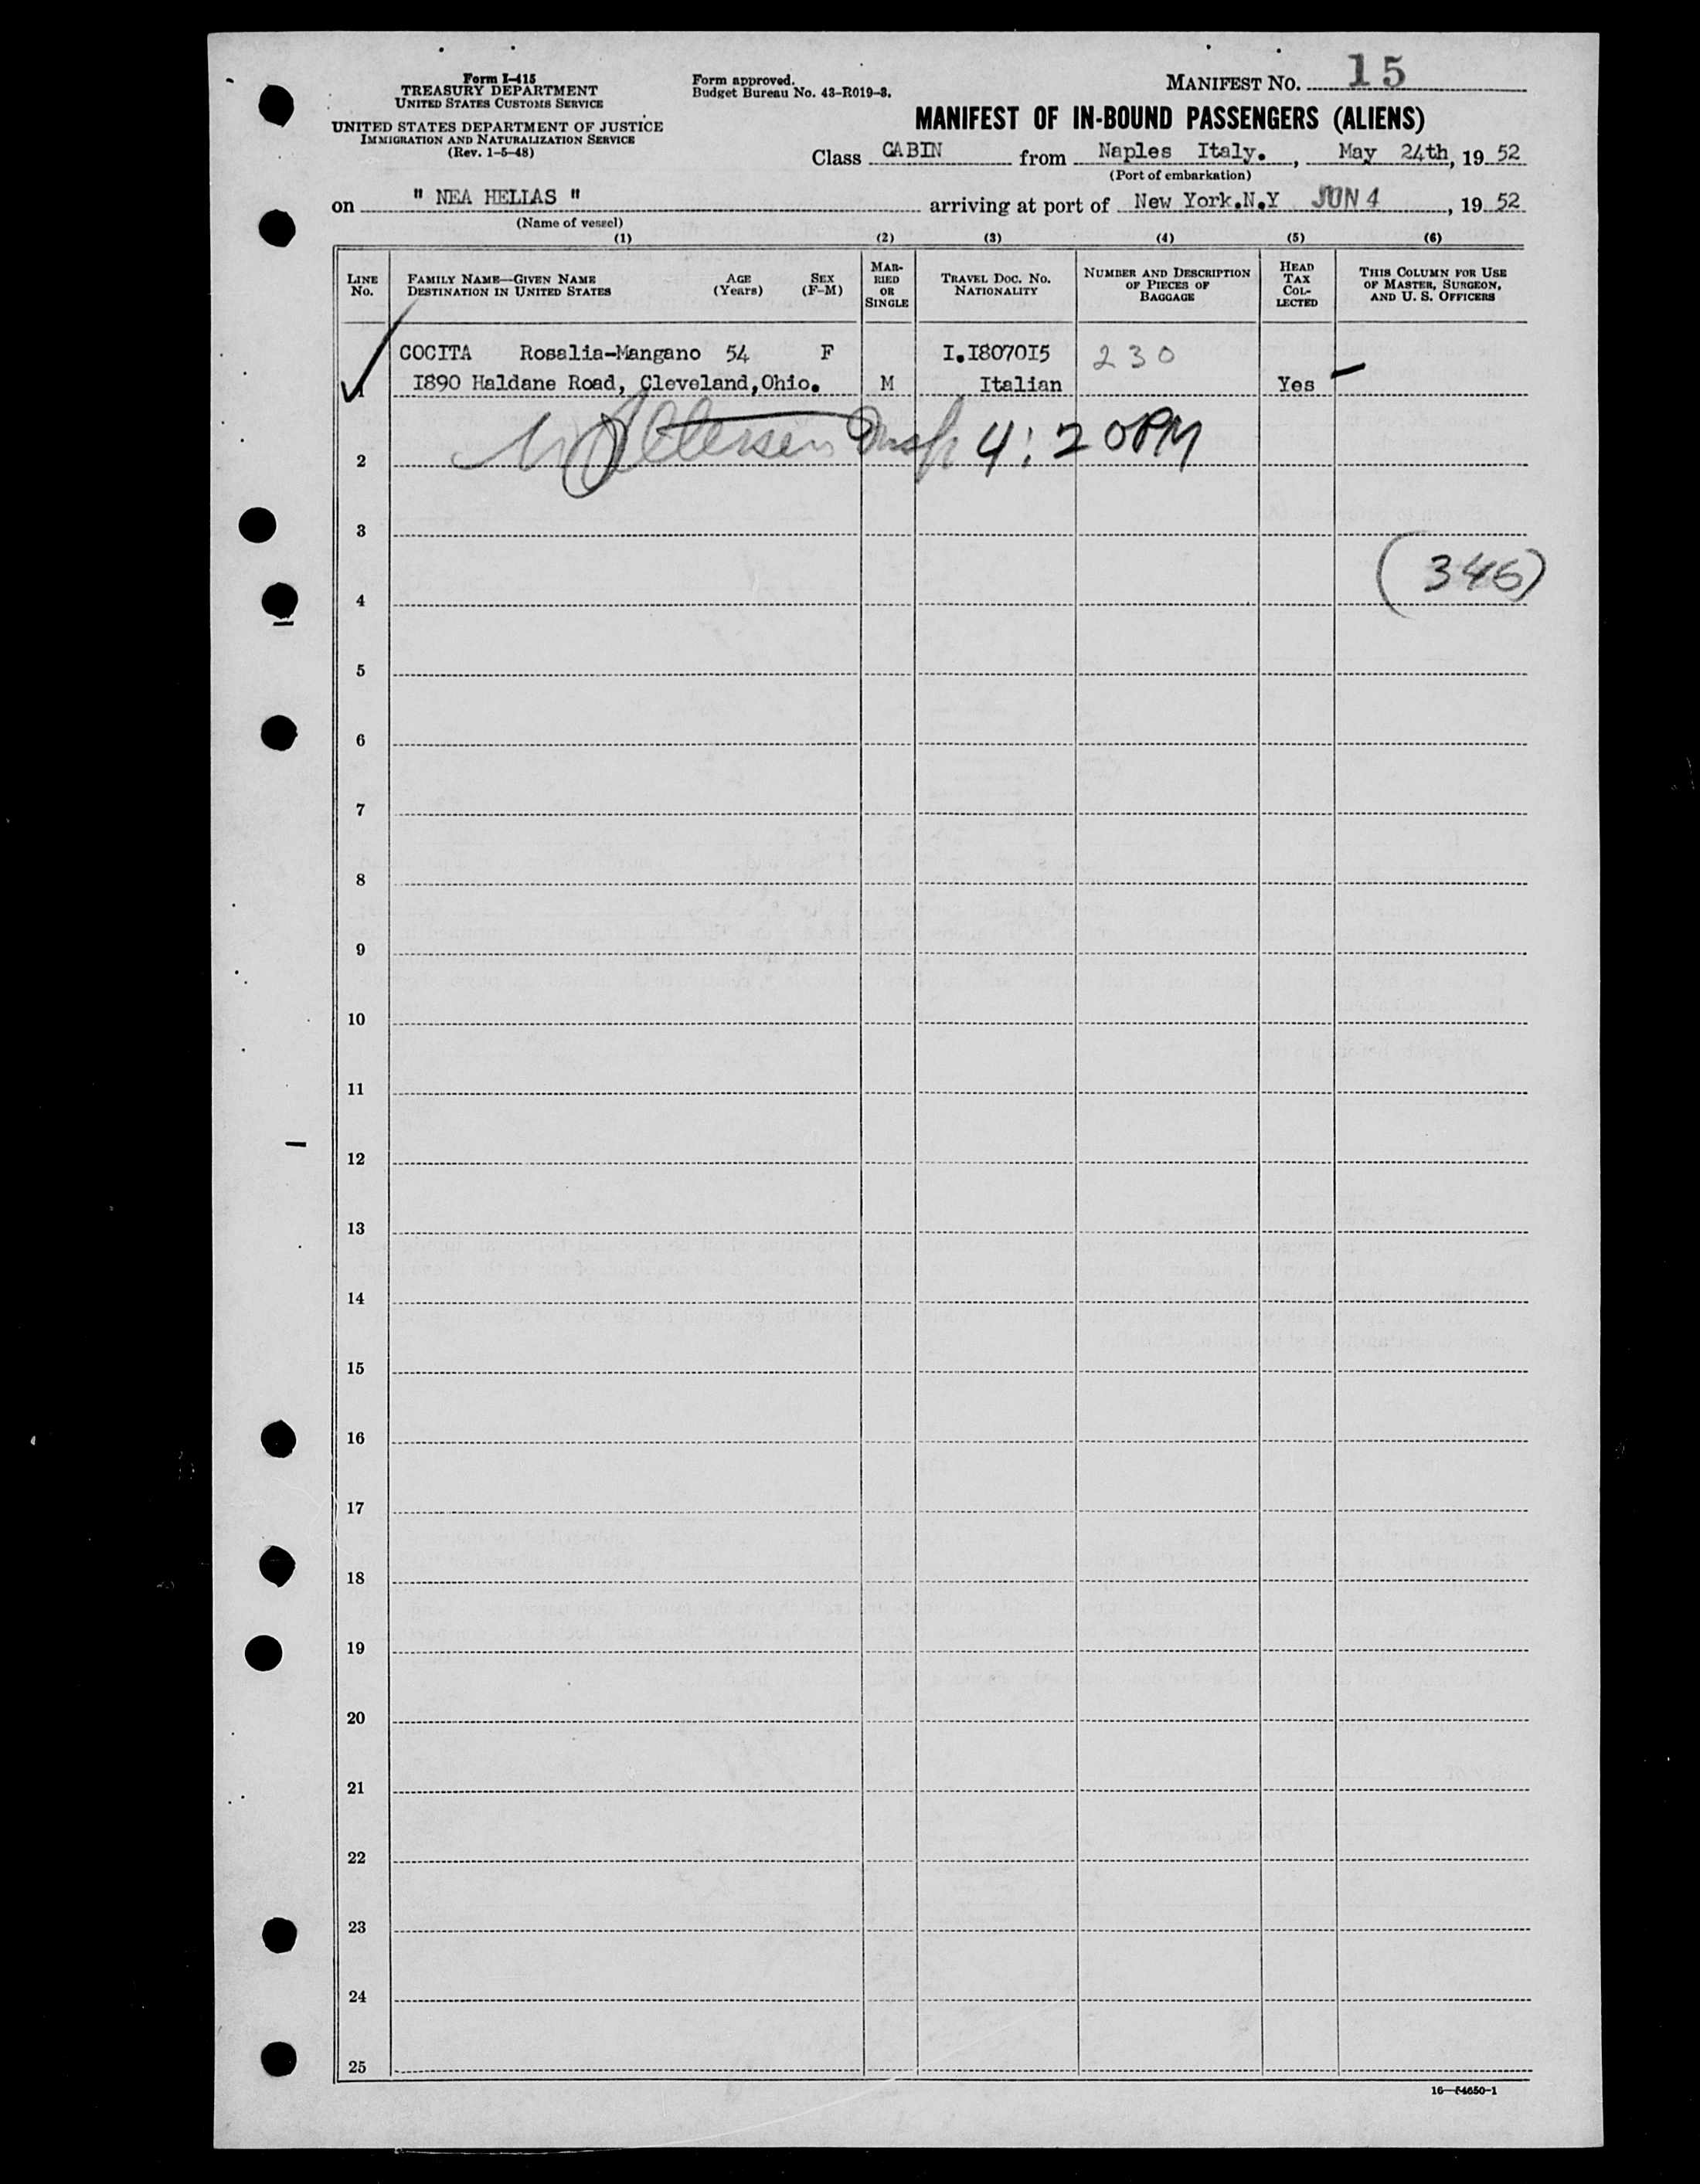 Form I-415
TREASURY DEPARTMENT
UNITED STATES CUSTOMS SERVICE
UNITED STATES DEPARTMENT OF JUSTICE
IMMIGRATION AND NATURALIZATION SERVICE
(Rev. 1-5-48)
Form approved.
Budget Bureau No. 43-R019-3.
MANIFEST NO. 15
MANIFEST OF IN-BOUND PASSENGERS (ALIENS)
Class CABIN from Naples Italy. , May 24th, 19 52
(Port of embarkation)
on " NEA HELLAS " arriving at port of New York.N.Y JUN 4 , 19 52
(Name of vessel)
(1) (2) (3) (4) (5) (6)
LINE No.
FAMILY NAME—GIVEN NAME
DESTINATION IN UNITED STATES
AGE (Years)
SEX (F-M)
MARRIED OR SINGLE
TRAVEL DOC. NO.
NATIONALITY
NUMBER AND DESCRIPTION OF PIECES OF BAGGAGE
HEAD TAX COLLECTED
THIS COLUMN FOR USE OF MASTER, SURGEON, AND U. S. OFFICERS
COCITA Rosalia-Mangano 54 F I.I8070I5 230
1 I890 Haldane Road, Cleveland,Ohio. M Italian Yes
Insp 4:20PM
2
3
(346)
4
5
6
7
8
9
10
11
12
13
14
15
16
17
18
19
20
21
22
23
24
25
16—54650-1